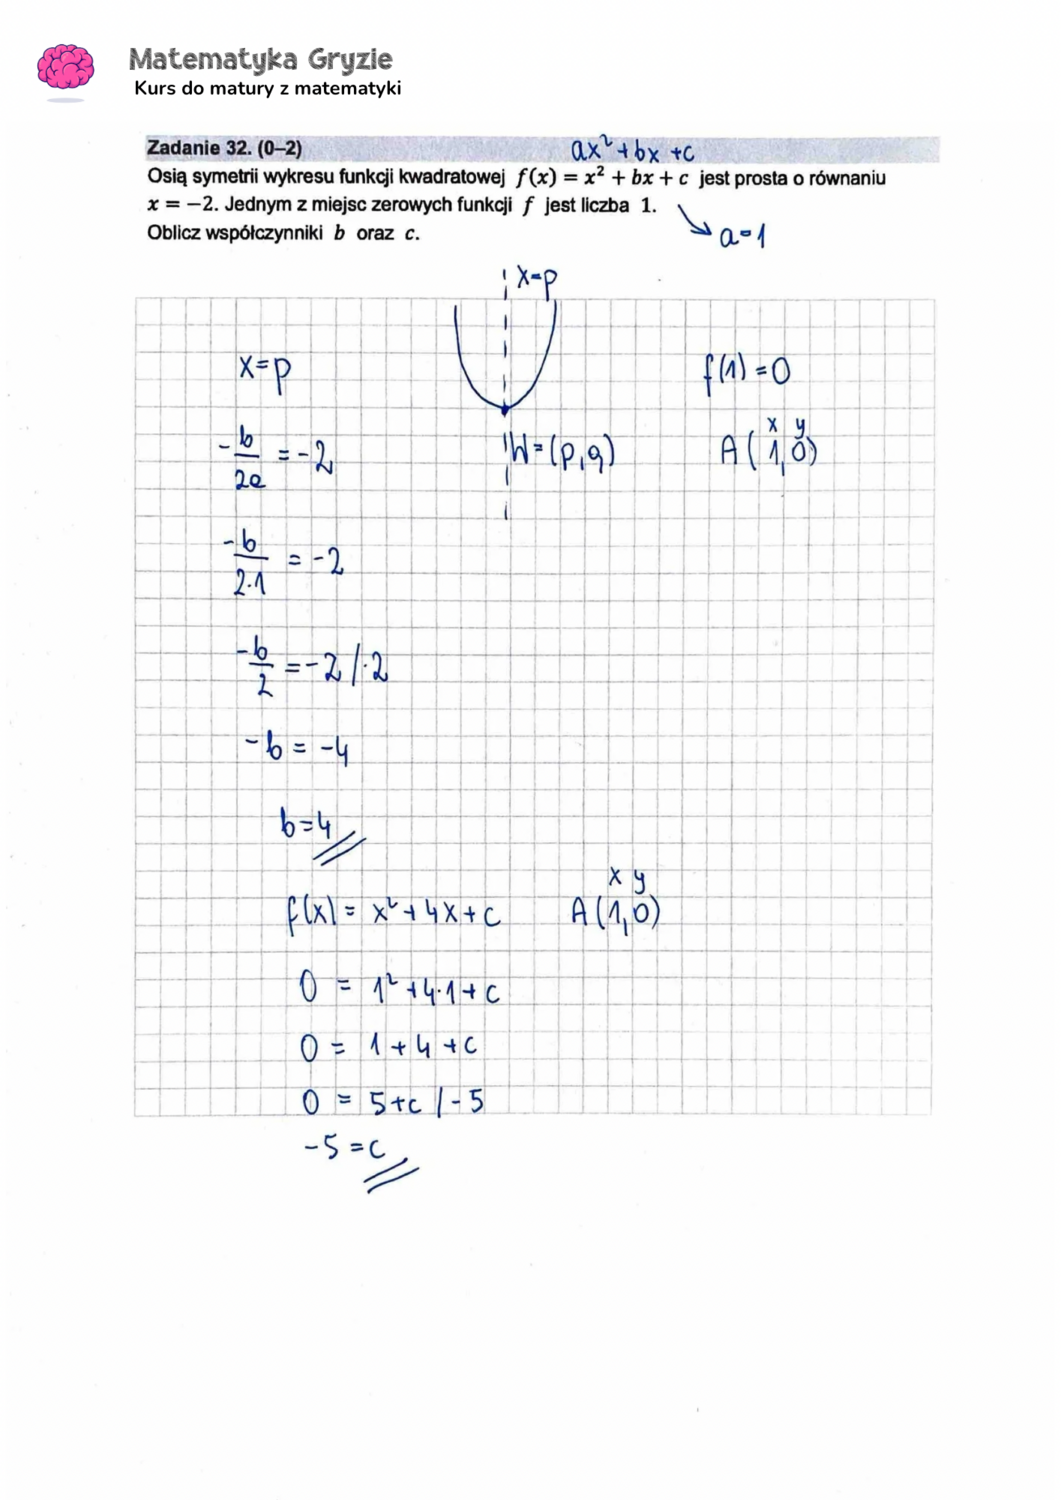 Matematyka Gryzie
Kurs do matury z matematyki
Zadanie 32. (0–2) ax² + bx + c
Osią symetrii wykresu funkcji kwadratowej f(x) = x² + bx + c jest prosta o równaniu
x = −2. Jednym z miejsc zerowych funkcji f jest liczba 1.
Oblicz współczynniki b oraz c.
a=1
x=p
x=p
f(1) = 0
-b/2a = -2
W=(p,q)
x y
A(1,0)
-b/2·1 = -2
-b/2 = -2 /·2
-b = -4
b=4
x y
f(x) = x² + 4x + c A(1,0)
0 = 1² + 4·1 + c
0 = 1 + 4 + c
0 = 5+c /-5
-5 = c